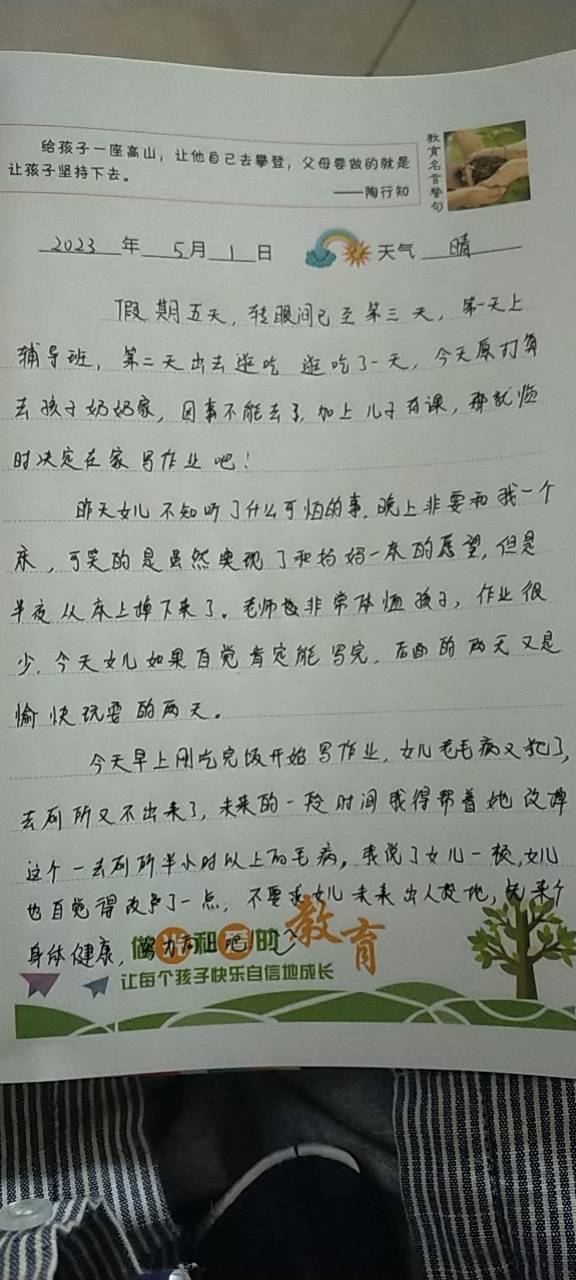 给孩子一座高山，让他自己去攀登，父母要做的就是
让孩子坚持下去。
——陶行知
教育名言警句
2023年5月1日 天气 晴
假期五天，转眼间已至第三天，第一天上
辅导班，第二天出去逛吃逛吃了一天，今天原打算
去孩子奶奶家，因事不能去了，加上儿子有课，那就临
时决定在家写作业吧！
昨天女儿不知听了什么可怕的事，晚上非要和我一个
床，可笑的是虽然实现了和妈妈一床的愿望，但是
半夜从床上掉下来了。老师也非常体恤孩子，作业很
少，今天女儿如果自觉肯定能写完，后面的两天又是
愉快玩耍的两天。
今天早上刚吃完饭开始写作业，女儿老毛病又犯了，
去厕所又不出来了，未来的一段时间我得帮着她改掉
这个一去厕所半小时以上的毛病，我说了女儿一顿，女儿
也自觉得改点了一点，不要求女儿未来出人头地，就来个
身体健康，努力向上吧！
做 和 的教育
让每个孩子快乐自信地成长